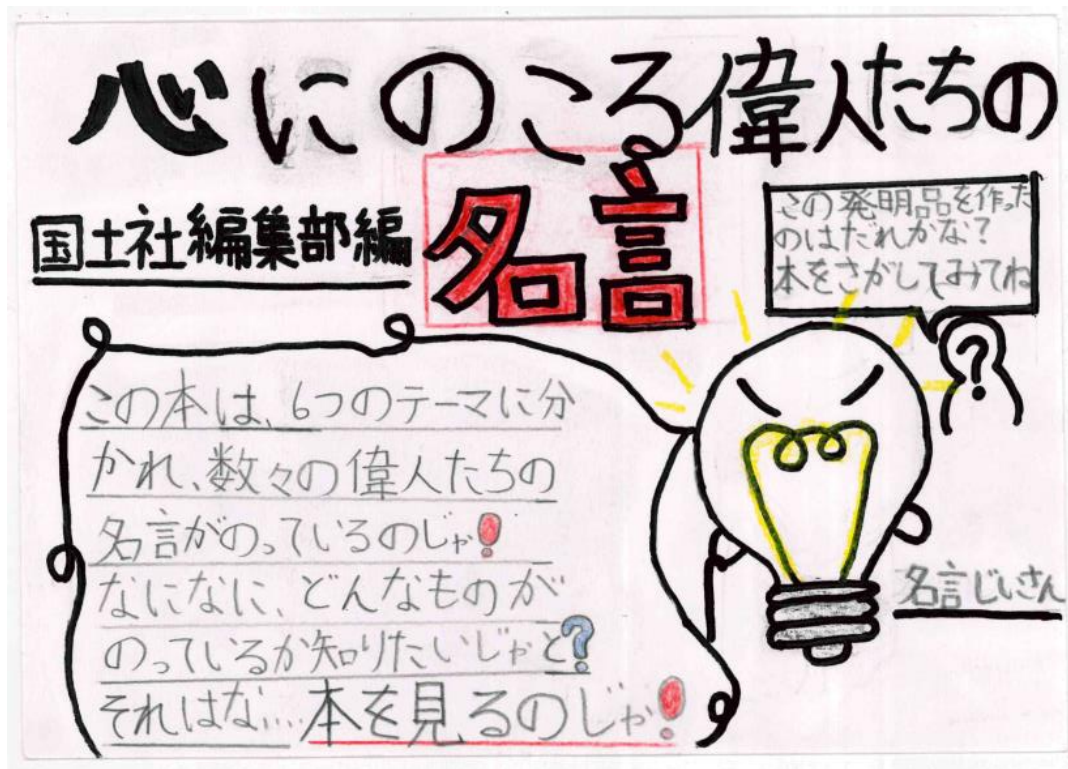 心にのこる偉人たちの
名言
国土社編集部編
この発明品を作った
のはだれかな?
本をさがしてみてね
?
この本は、6つのテーマに分
かれ、数々の偉人たちの
名言がのっているのじゃ!
なになに、どんなものが
のっているか知りたいじゃと?
それはな....本を見るのじゃ!
名言じいさん